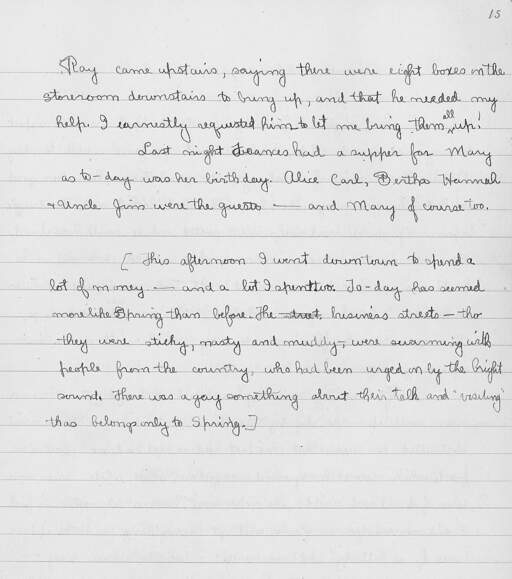 15
Ray came upstairs, saying there were eight boxes in the
storeroom downstairs to bring up, and that he needed my
help. I earnestly requested him to let me bring them all up!
Last night Frances had a supper for Mary
as to-day was her birthday. Alice Carl, Bertha Hannah
& Uncle Jim were the guests — and Mary of course too.
[ This afternoon I went downtown to spend a
lot of money — and a lot I spent too. To-day has seemed
more like Spring than before. The street, business streets — tho
they were sticky, nasty and muddy, were swarming with
people from the country, who had been urged on by the bright
sound. There was a gay something about their talk and "visiting"
thas belongs only to Spring.]